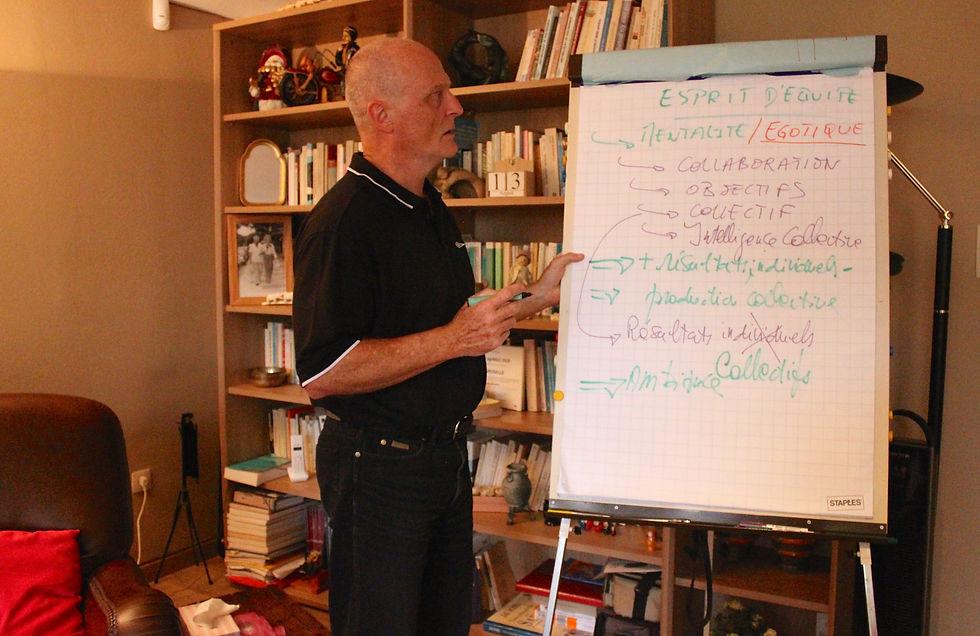 ESPRIT D'EQUITE
MENTALITE / EGOTIQUE
COLLABORATION
OBJECTIFS
COLLECTIF
Intelligence Collective
+ résultats individuels -
production collective
Résultats individuels
Collectifs
Ambiance
STAPLES
113